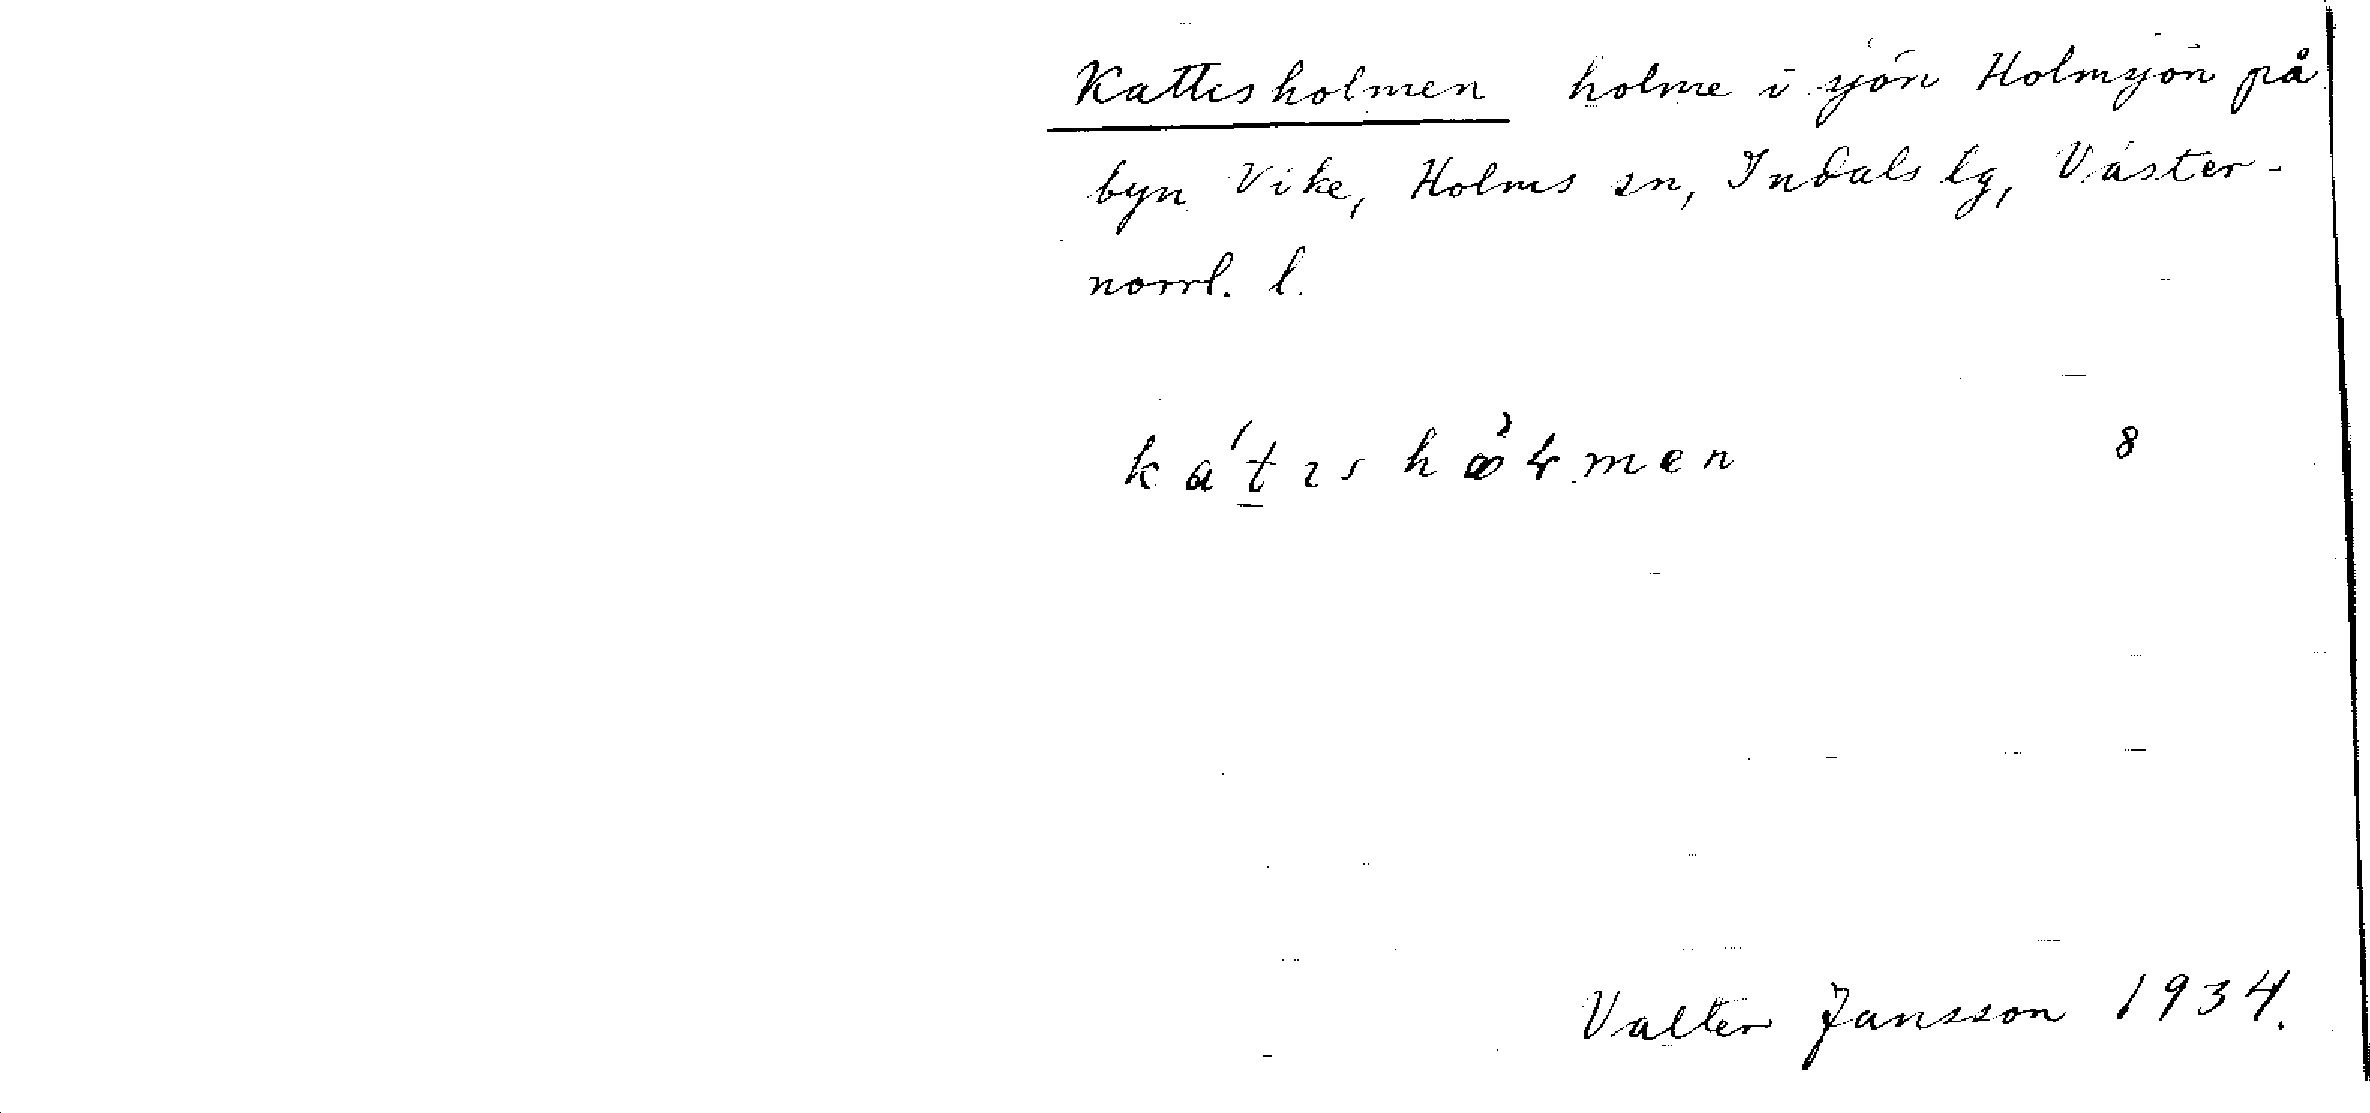 Kattisholmen holme i sjön Holmsjön på
byn Vike, Holms sn, Indals lg, Väster-
norrl. l.
8
Valter Jansson 1934.